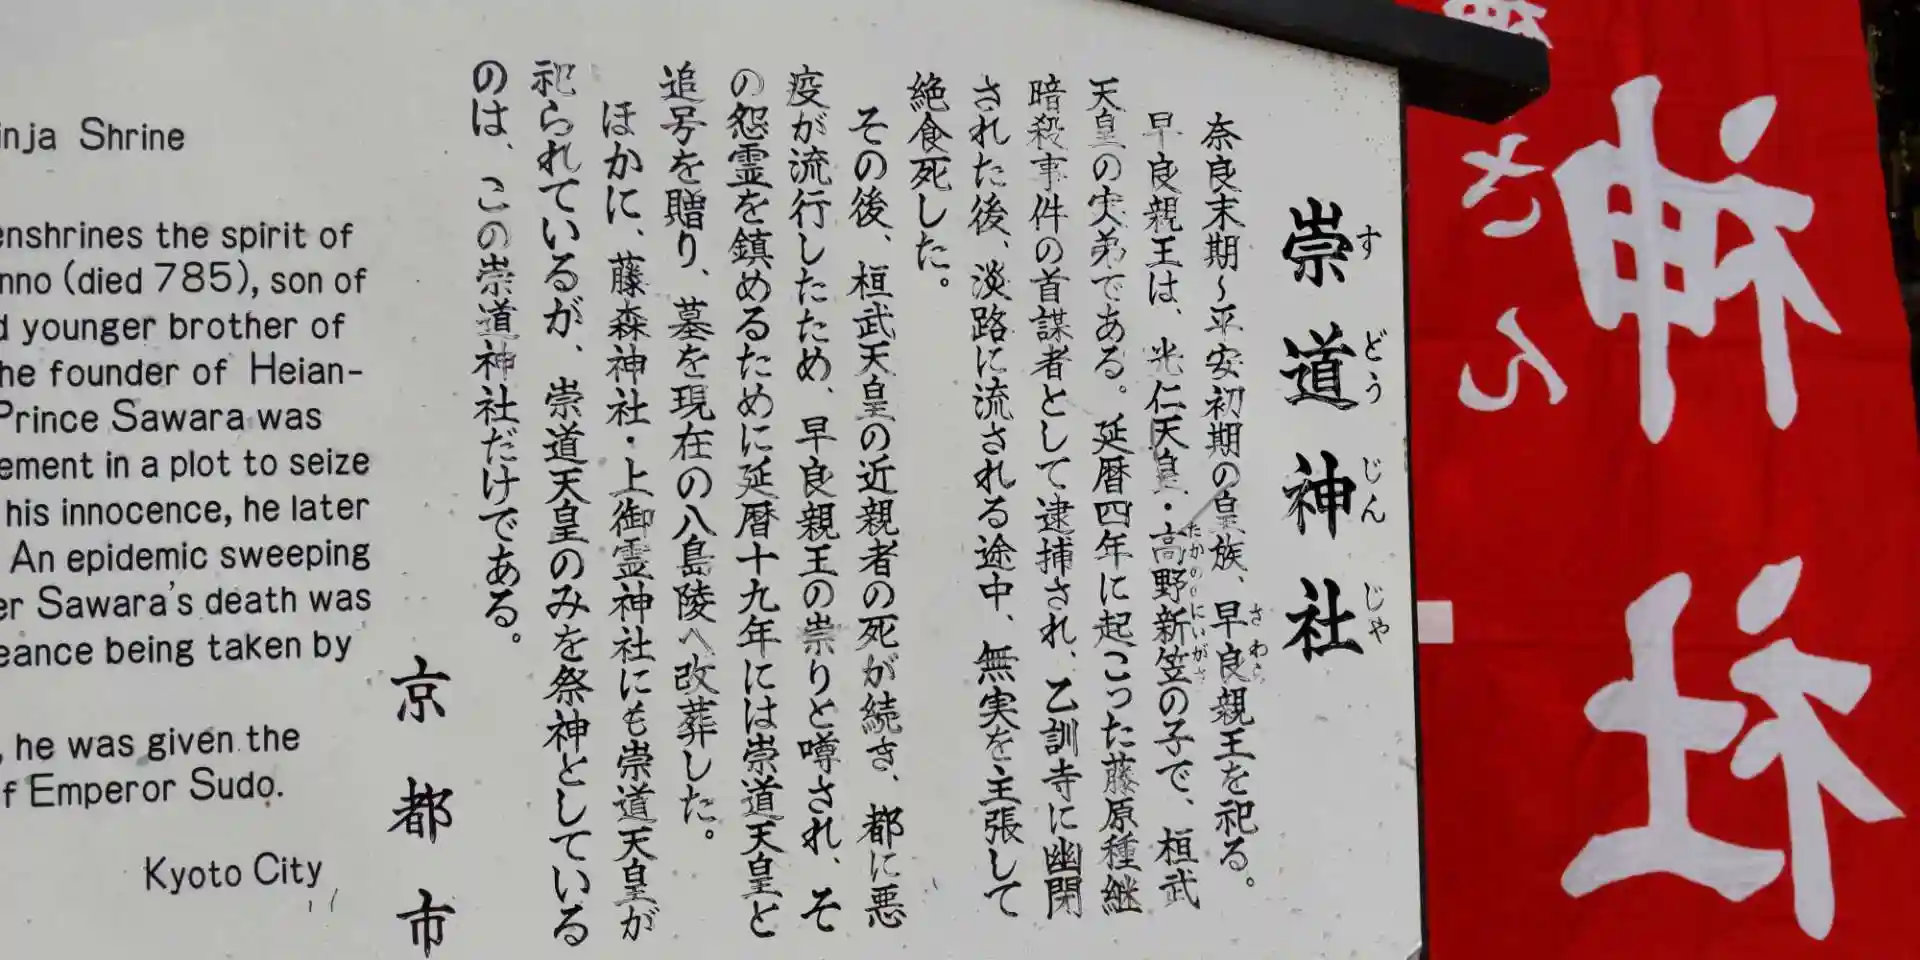 崇道神社
すどうじんじゃ
奈良末期～平安初期の皇族、早良親王を祀る。
さわら
早良親王は、光仁天皇・高野新笠の子で、桓武
たかののにいがさ
天皇の実弟である。延暦四年に起こった藤原種継
暗殺事件の首謀者として逮捕され、乙訓寺に幽閉
された後、淡路に流される途中、無実を主張して
絶食死した。
その後、桓武天皇の近親者の死が続き、都に悪
疫が流行したため、早良親王の祟りと噂され、そ
の怨霊を鎮めるために延暦十九年には崇道天皇と
追号を贈り、墓を現在の八島陵へ改葬した。
ほかに、藤森神社・上御霊神社にも崇道天皇が
祀られているが、崇道天皇のみを祭神としている
のは、この崇道神社だけである。
京都市
Shrine
enshrines the spirit of
(died 785), son of
younger brother of
founder of Heian-
Prince Sawara was
in a plot to seize
his innocence, he later
An epidemic sweeping
Sawara's death was
being taken by
, he was given the
of Emperor Sudo.
Kyoto City
神社
さん